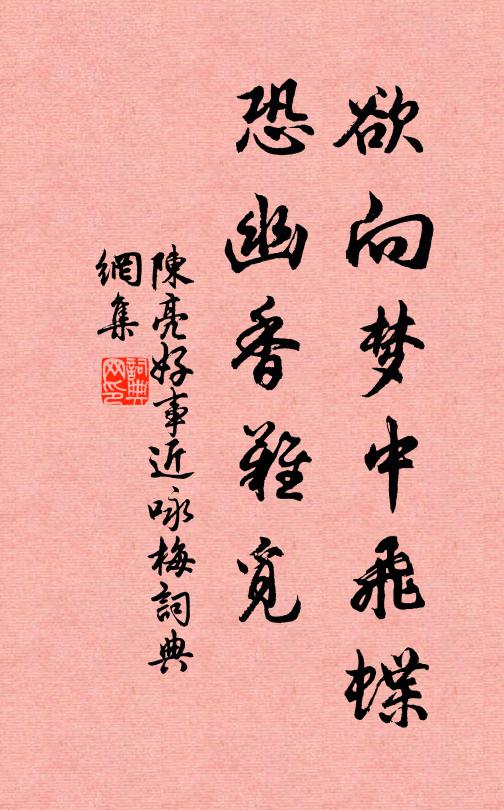 欲向梦中飛蝶
恐幽香難覓
陳亮好事近咏梅詞典
網集
詞典
网印